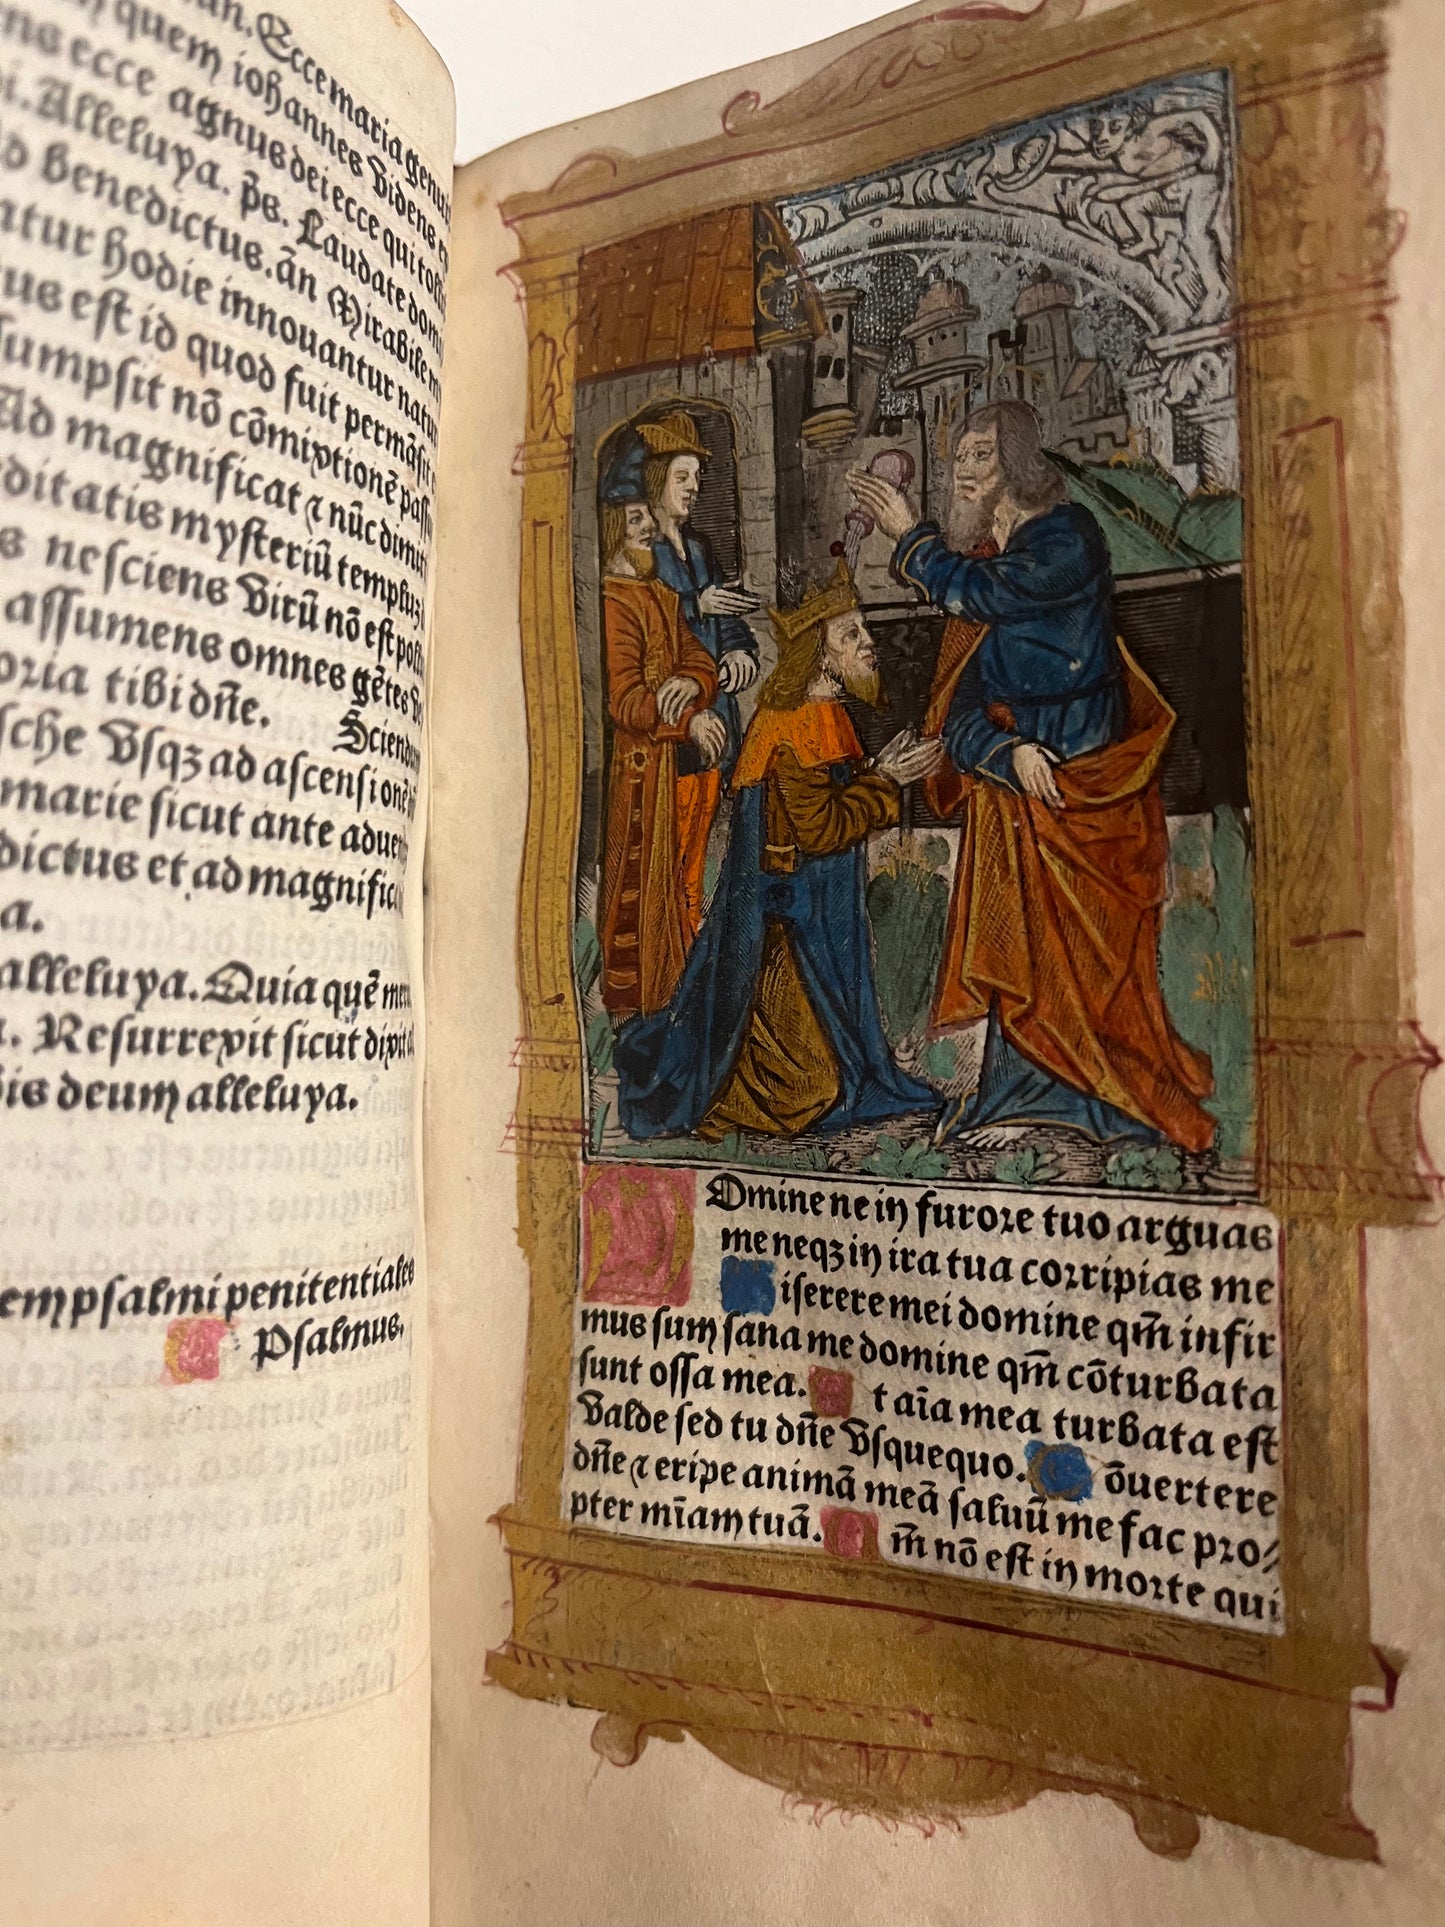 Ecce maria genuit
quem iohannes videns
ecce agnus dei ecce qui tollit
. Alleluya. p̄s. Laudate
benedictus. ān Mirabile
hodie innouantur
est id quod fuit permāsit
sumpsit nō cōmixtionē
Ad magnificat ⁊ nūc dimit
mysteriū
nesciens virū nō est
assumens omnes gētes
tibi dn̄e. Sciend
vsqꝫ ad ascensionē
marie sicut ante
et ad magnific
a.
alleluya. Quia quē
. Resurrexit sicut dixit
deum alleluya.
psalmi penitentiales
Psalmus.
Domine ne in furore tuo arguas
me neqꝫ in ira tua corripias me
iserere mei domine qm̄ infir
mus sum sana me domine qm̄ cōturbata
sunt ossa mea. t aīa mea turbata est
valde sed tu dn̄e vsquequo. Cōuertere
dn̄e ⁊ eripe animā meā saluū me fac pro⸗
pter mīam tuā. m̄ nō est in morte qui